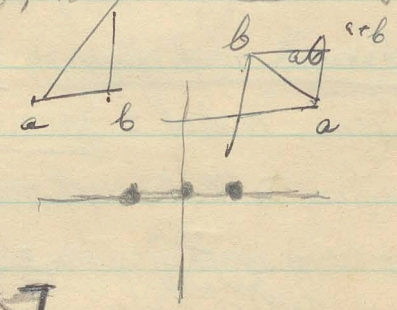 a+b
b
ab
a b
a